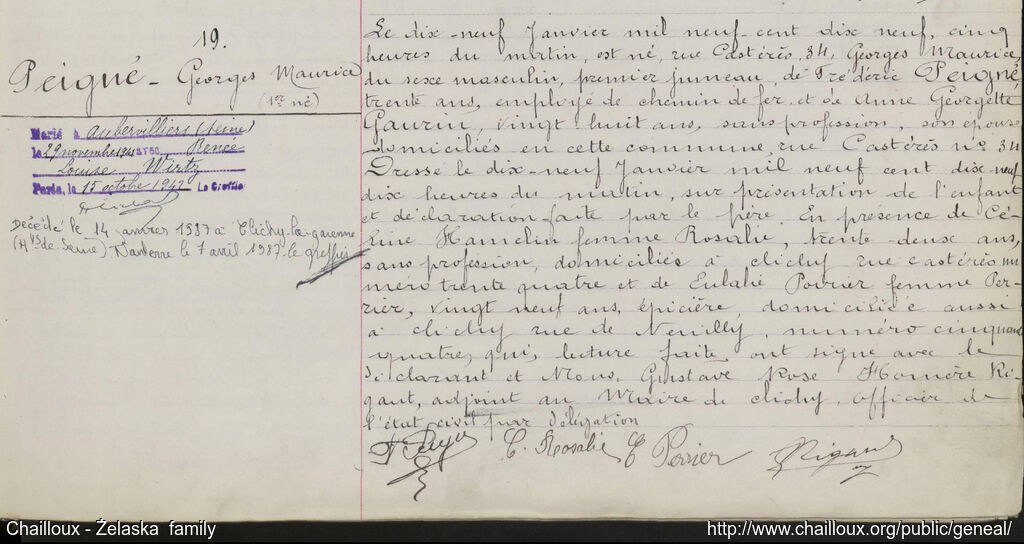 19.
Peigné - Georges Maurice
(1er né)
Marié à Aubervilliers (Seine)
le 29 novembre 1941 Renée
Louise Wirtz
Paris, le 15 octobre 1942 Le Greffier
Décédé le 14 janvier 1987 à Clichy-la-garenne
(Hts de Seine) Nanterre le 7 avril 1987 le greffier
Le dix-neuf Janvier mil neuf-cent dix neuf, cinq
heures du matin, est né, rue Castérès, 34, Georges Maurice,
du sexe masculin, premier jumeau, de Frédéric Peigné,
trente ans, employé de chemin de fer et de Anne Georgette
Gaurin, vingt-huit ans, sans profession, son épouse
domiciliés en cette commune, rue Castérès no 34
Dressé le dix-neuf Janvier mil neuf cent dix-neuf
dix heures du matin, sur présentation de l'enfant
et déclaration faite par le père. En présence de Cé-
line Hamelin femme Rosalie, trente-deux ans,
sans profession, domiciliés à clichy rue castérès nu
méro trente quatre et de Eulalie Poirier femme Per-
rier, vingt neuf ans, épicière, domiciliée aussi
à clichy rue de Neuilly, numéro cinquante
quatre, qui, lecture faite, ont signé avec le
déclarant et Nous, Gustave Rose Homère Ri-
gaut, adjoint au Maire de clichy, officier de
l'état civil par délégation
C. Rosalie E Perrier Rigaut
Chailloux - Želaska family
http://www.chailloux.org/public/geneal/